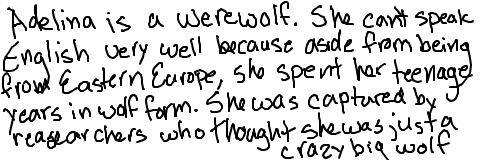 Adelina is a werewolf. She can't speak
English very well because aside from being
from Eastern Europe, she spent her teenage
years in wolf form. She was captured by
reasearchers who thought she was just a
crazy big wolf